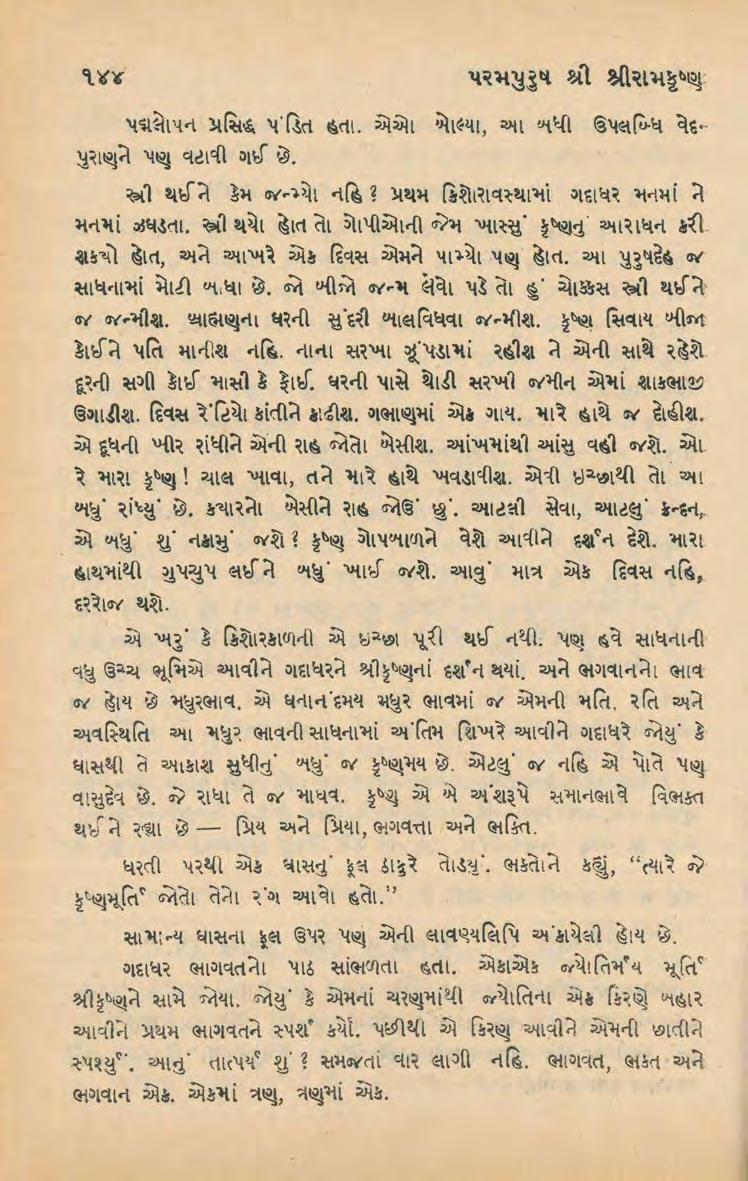 ૧૪૪ પરમપુરુષ શ્રી શ્રીરામકૃષ્ણ
પદ્મલોપન પ્રસિદ્ધ પંડિત હતા. એઓ બોલ્યા, આ બધી ઉપલબ્ધિ વેદ-
પુરાણને પણ વટાવી ગઈ છે.
સ્ત્રી થઈને કેમ જન્મ્યો નહિ? પ્રથમ કિશોરાવસ્થામાં ગદાધર મનમાં ને
મનમાં ઝઘડતા. સ્ત્રી થયો હોત તો ગોપીઓની જેમ ખાસ્સું કૃષ્ણનું આરાધન કરી
શકયો હોત, અને આખરે એક દિવસ એમને પામ્યો પણ હોત. આ પુરુષદેહ જ
સાધનામાં મોટી બાધા છે. જો બીજો જન્મ લેવો પડે તો હું ચોક્કસ સ્ત્રી થઈને
જ જન્મીશ. બ્રાહ્મણના ઘરની સુંદરી બાલવિધવા જન્મીશ. કૃષ્ણ સિવાય બીજા
કોઈને પતિ માનીશ નહિ. નાના સરખા ઝૂંપડામાં રહીશ ને એની સાથે રહેશે
દૂરની સગી કોઈ માસી કે ફોઈ. ઘરની પાસે થોડી સરખી જમીન એમાં શાકભાજી
ઉગાડીશ. દિવસ રેંટિયો કાંતીને કાઢીશ. ગભાણમાં એક ગાય. મારે હાથે જ દોહીશ.
એ દૂધની ખીર રાંધીને એની રાહ જોતો બેસીશ. આંખમાંથી આંસુ વહી જશે. ઓ
રે મારા કૃષ્ણ! ચાલ ખાવા, તને મારે હાથે ખવડાવીશ. એવી ઇચ્છાથી તો આ
બધું રાંધ્યું છે. કયારનો બેસીને રાહ જોઉં છું. આટલી સેવા, આટલું ક્રન્દન,
એ બધું શું નકામું જશે? કૃષ્ણ ગોપબાળને વેશે આવીને દર્શન દેશે. મારા
હાથમાંથી ગુપચુપ લઈને બધું ખાઈ જશે. આવું માત્ર એક દિવસ નહિ,
દરરોજ થશે.
એ ખરું કે કિશોરકાળની એ ઇચ્છા પૂરી થઈ નથી. પણ હવે સાધનાની
વધુ ઉચ્ચ ભૂમિએ આવીને ગદાધરને શ્રીકૃષ્ણનાં દર્શન થયાં. અને ભગવાનનો ભાવ
જ હોય છે મધુરભાવ. એ ઘનાનંદમય મધુર ભાવમાં જ એમની મતિ, રતિ અને
અવસ્થિતિ આ મધુર ભાવની સાધનામાં અંતિમ શિખરે આવીને ગદાધરે જોયું કે
ઘાસથી તે આકાશ સુધીનું બધું જ કૃષ્ણમય છે. એટલું જ નહિ એ પોતે પણ
વાસુદેવ છે. જે રાધા તે જ માધવ. કૃષ્ણ એ બે અંશરૂપે સમાનભાવે વિભક્ત
થઈને રહ્યા છે — પ્રિય અને પ્રિયા, ભગવત્તા અને ભક્તિ.
ધરતી પરથી એક ઘાસનું ફૂલ ઠાકુરે તોડયું. ભક્તોને કહ્યું, “ત્યારે જે
કૃષ્ણમૂર્તિ જોતો તેનો રંગ આવો હતો.”
સામાન્ય ઘાસના ફૂલ ઉપર પણ એની લાવણ્યલિપિ અંકાયેલી હોય છે.
ગદાધર ભાગવતનો પાઠ સાંભળતા હતા. એકાએક જ્યોતિર્મય મૂર્તિ
શ્રીકૃષ્ણને સામે જોયા. જોયું કે એમનાં ચરણમાંથી જ્યોતિના એક કિરણે બહાર
આવીને પ્રથમ ભાગવતને સ્પર્શ કર્યો. પછીથી એ કિરણ આવીને એમની છાતીને
સ્પર્શ્યું. આનું તાત્પર્ય શું? સમજતાં વાર લાગી નહિ. ભાગવત, ભકત અને
ભગવાન એક. એકમાં ત્રણ, ત્રણમાં એક.